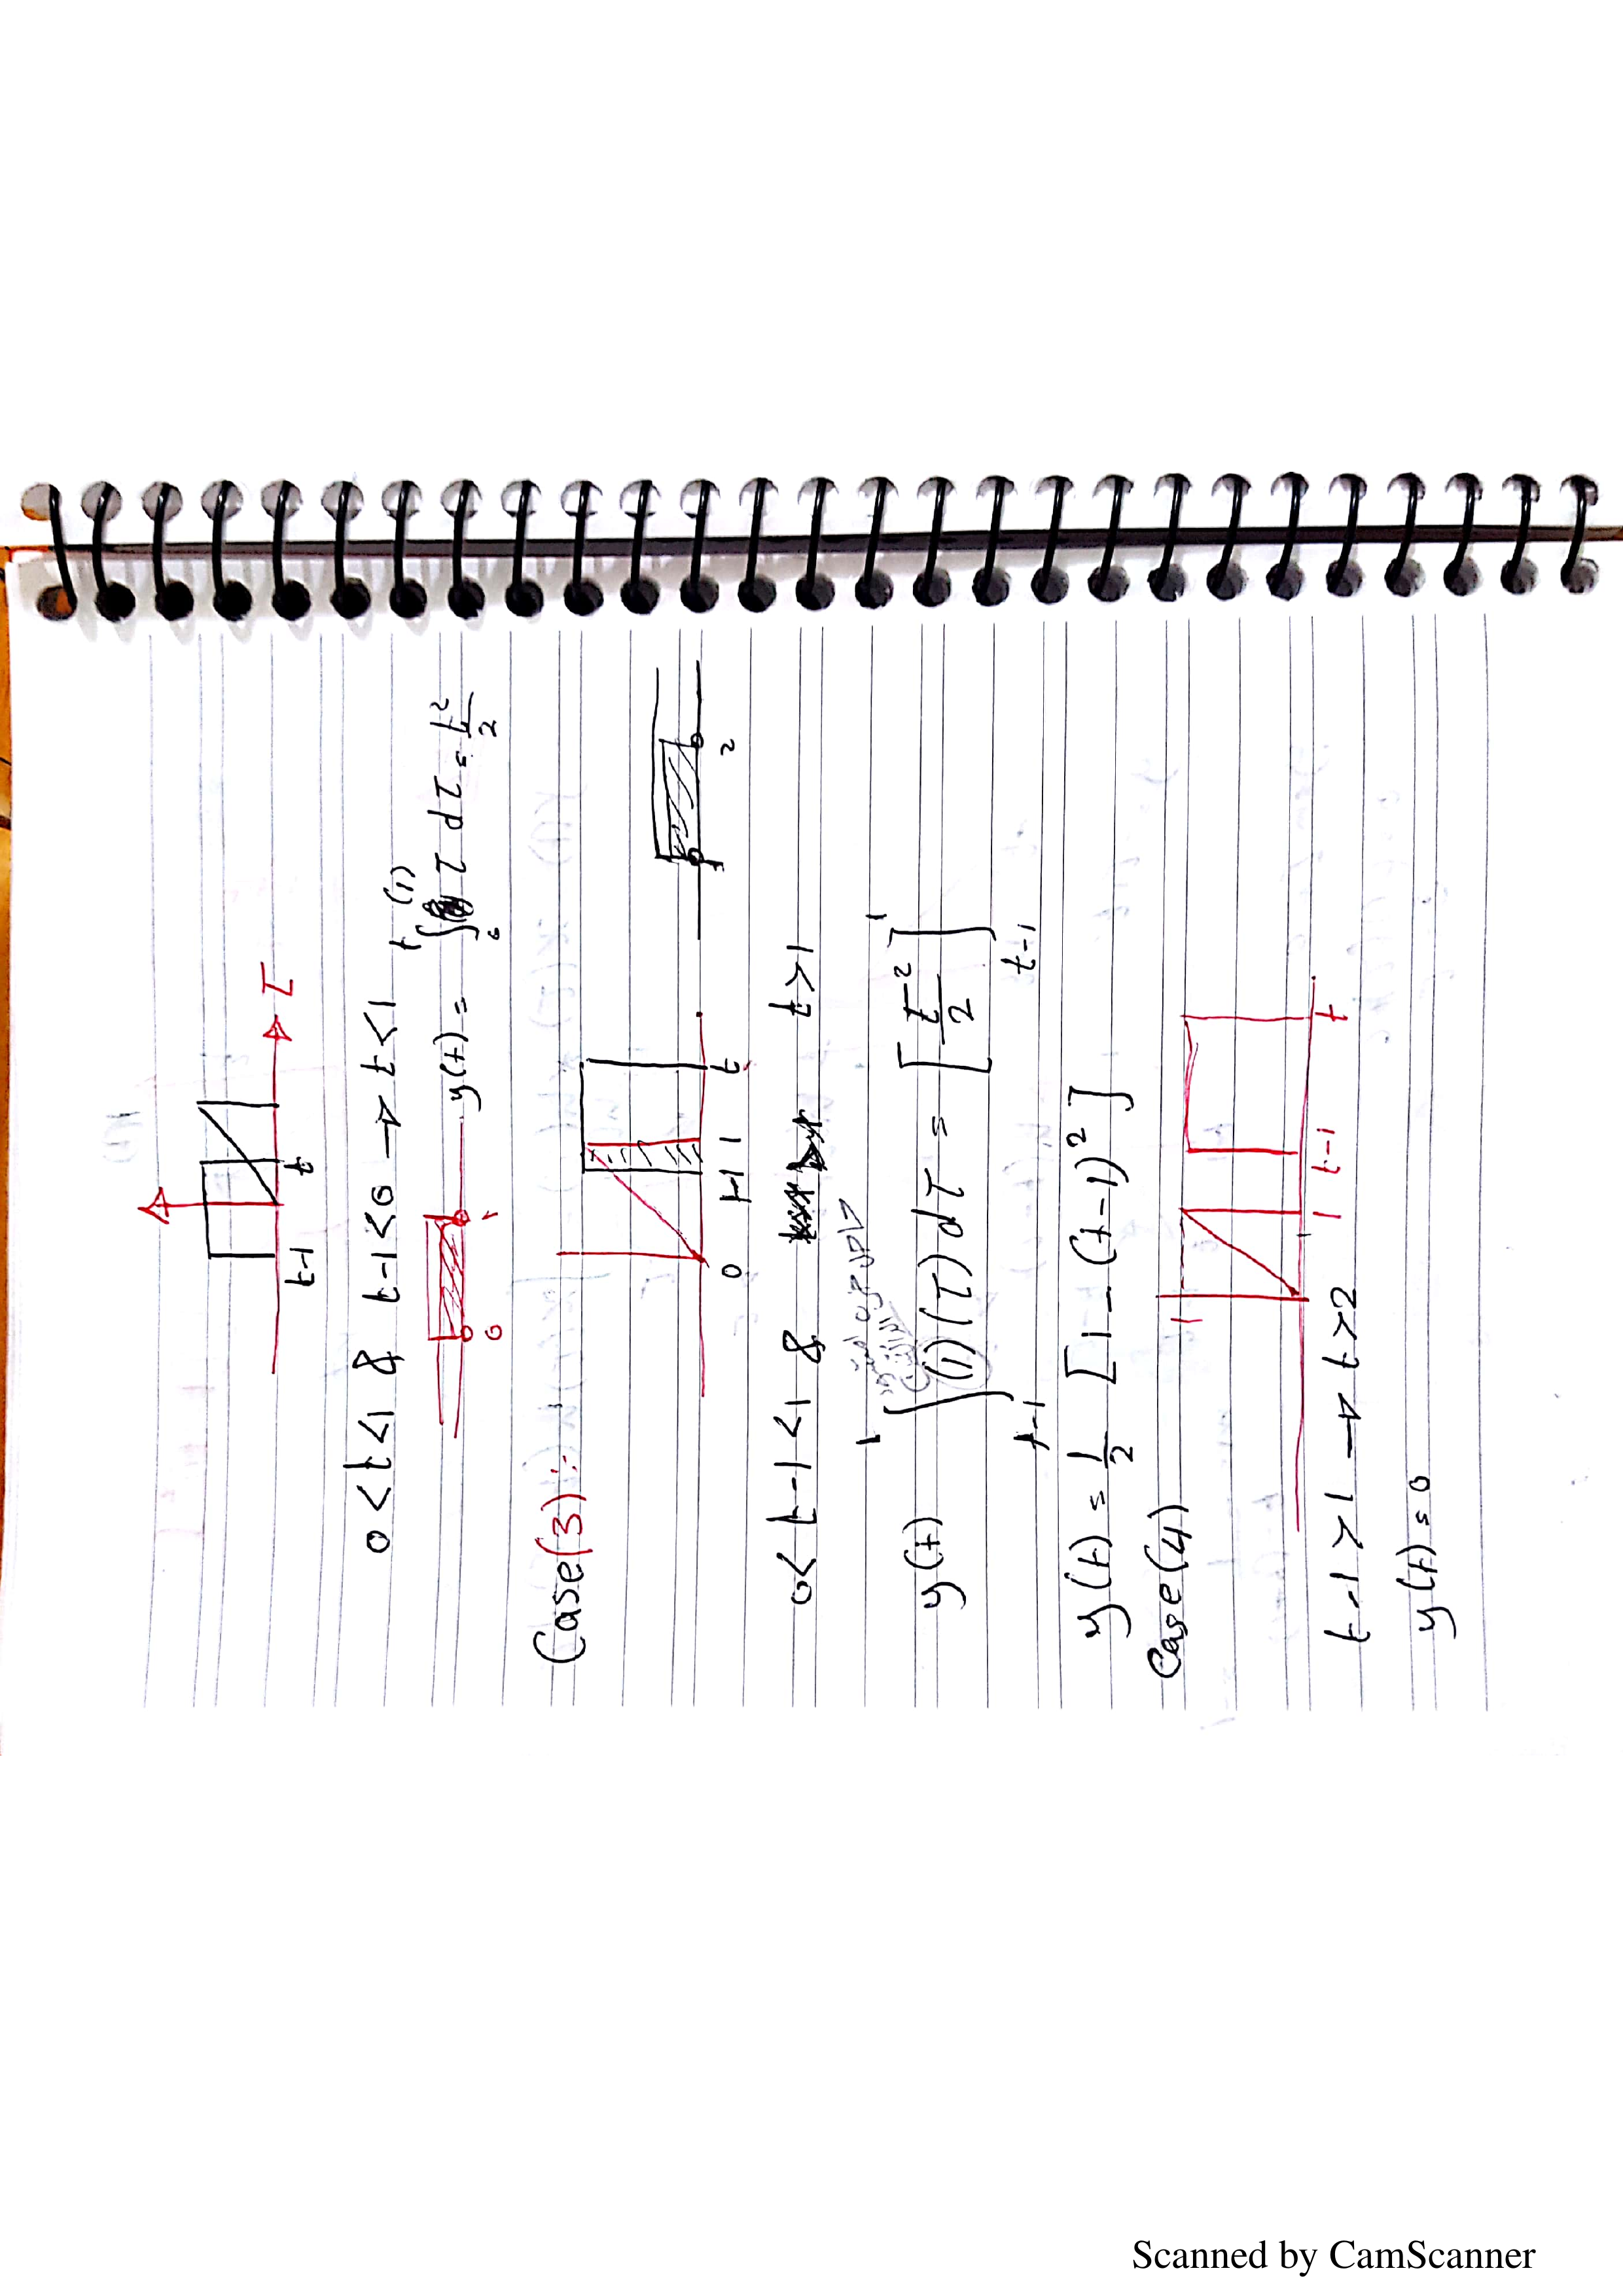 t-1 t τ
0<t<1 & t-1<0 → t<1
0 1 y(t) = ∫₀ᵗ (1) τ dτ = t²/2
Case(3):
0 t-1 1 t
1 2
0<t-1<1 & t>1
y(t) ∫ₜ₋₁¹ (1)(τ)dτ = [τ²/2]ₜ₋₁¹
y(t) = 1/2 [1-(t-1)²]
Case(4)
1
1 t-1 t
t-1>1 → t>2
y(t)=0
Scanned by CamScanner